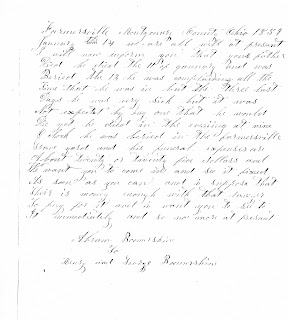 Farmersville Montgomery County Ohio 1859
January the 14 we are all well at present
I will now inform you that your father
he died the 11 of january and was
Buried the 13 he was complaining all the
time that he was in but the three last
Days he was very sick but it was
Not expected by any one that he would
Die yet he died in the evening at nine
O clock he was buried in the farmersville
Grave yard and his funeral expenses are
About twenty or twenty five dollars and
He want you to come and see it payed
As soon as you can and i suppose that
thair is money enough with that
To pay for it and i want you to
It immediately and so no more at present
Abram
To
and George